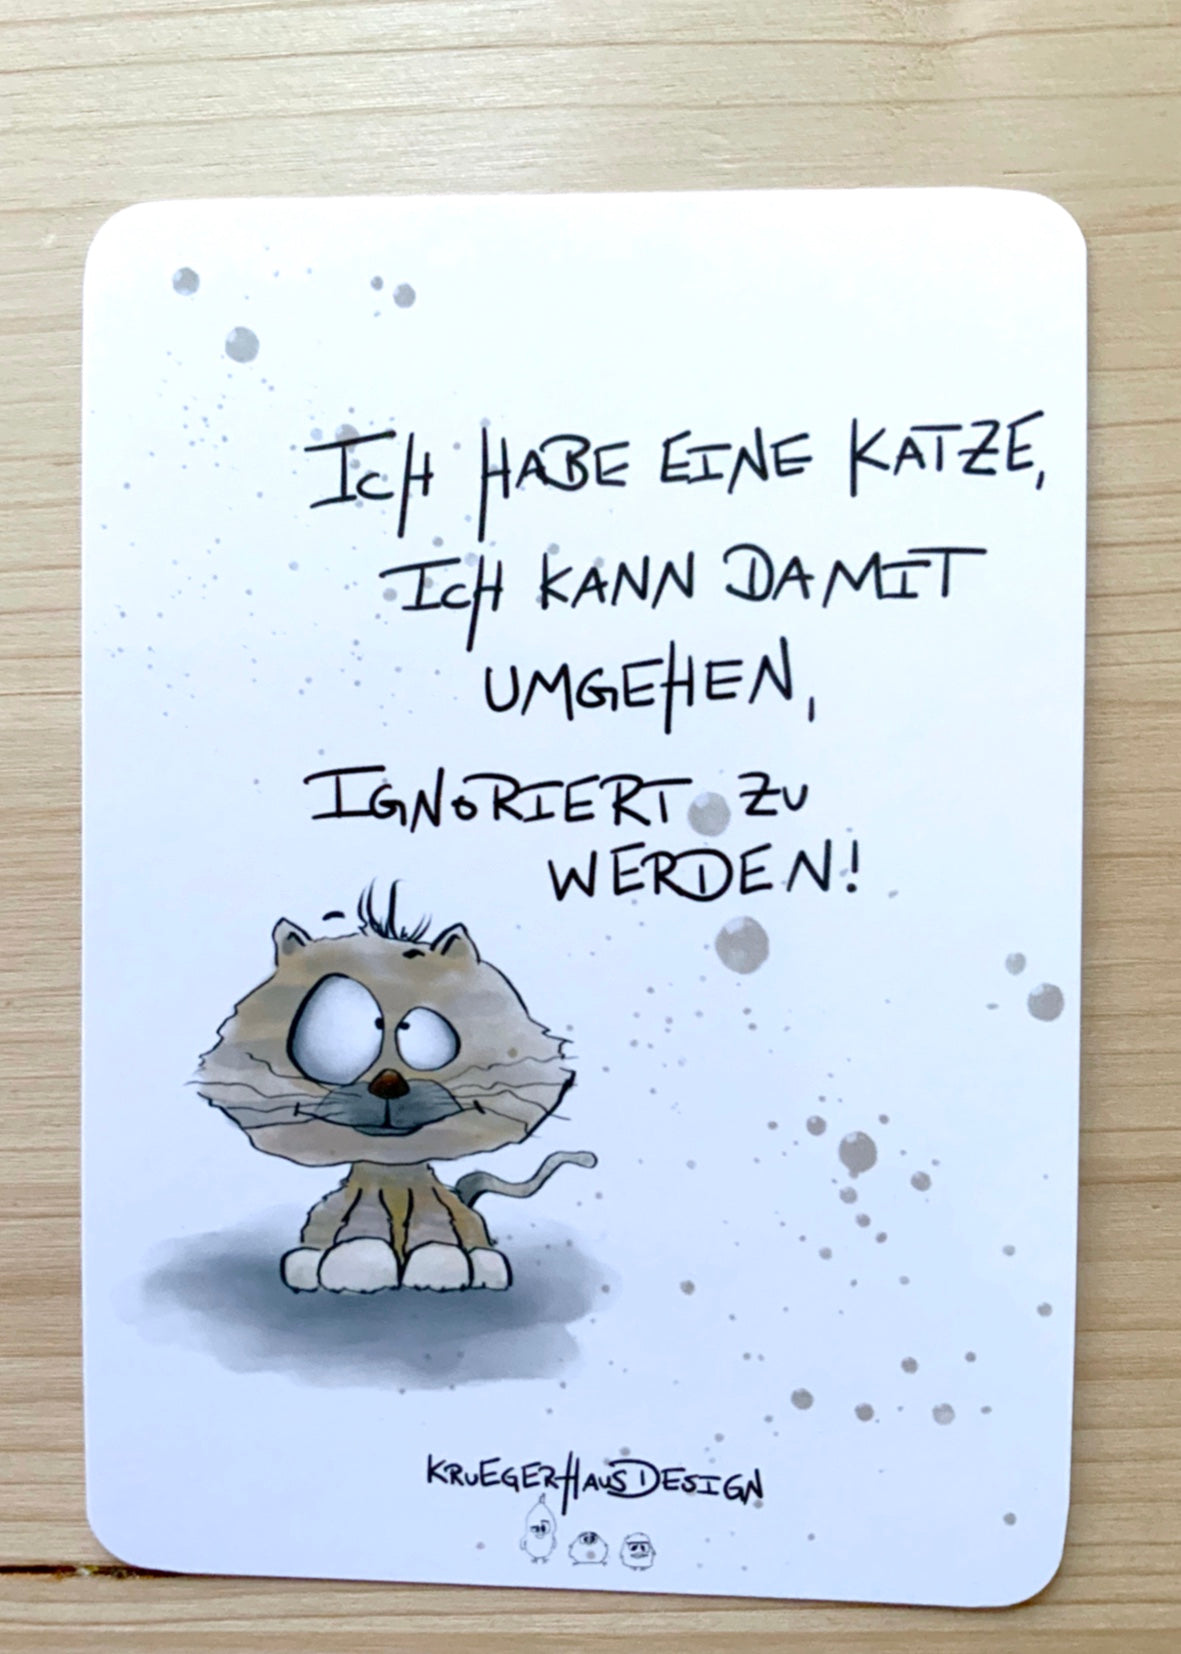 ICH HABE EINE KATZE,
ICH KANN DAMIT
UMGEHEN,
IGNORIERT ZU
WERDEN!
KRUEGERHAUSDESIGN